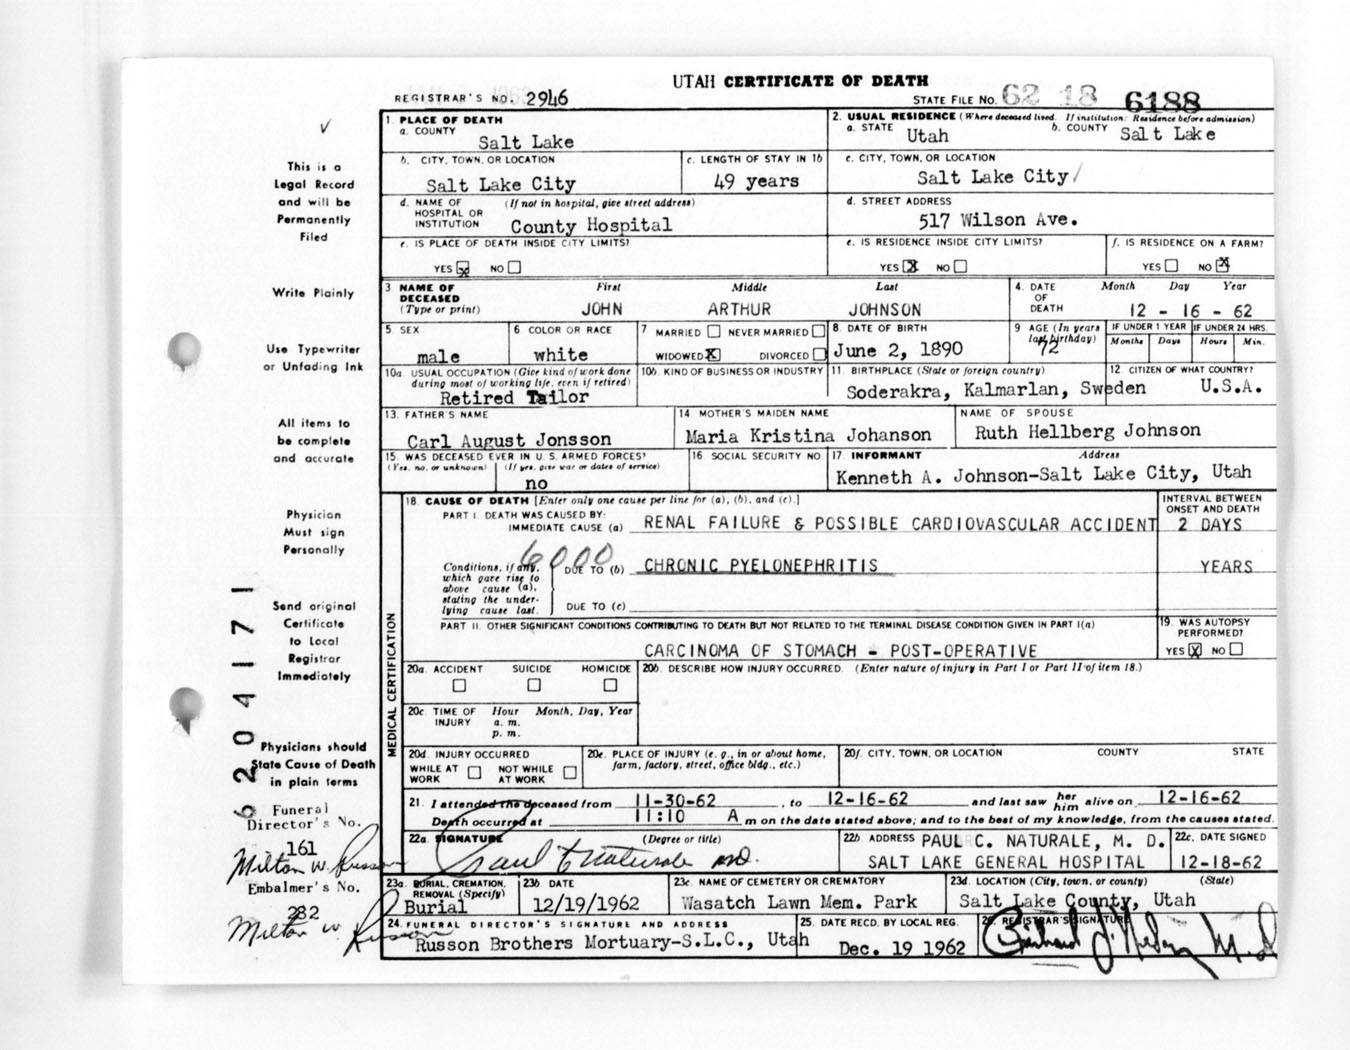 UTAH CERTIFICATE OF DEATH
REGISTRAR'S NO. 2946
STATE FILE NO. 62 18 6188
This is a
Legal Record
and will be
Permanently
Filed
Write Plainly
Use Typewriter
or Unfading Ink
All items to
be complete
and accurate
Physician
Must sign
Personally
Send original
Certificate
to Local
Registrar
Immediately
Physicians should
State Cause of Death
in plain terms
Funeral
Director's No.
161
Milton W. Russon
Embalmer's No.
282
Milton W. Russon
6204171
1. PLACE OF DEATH
a. COUNTY
Salt Lake
2. USUAL RESIDENCE (Where deceased lived. If institution: Residence before admission)
a. STATE Utah
b. COUNTY Salt Lake
b. CITY, TOWN, OR LOCATION
Salt Lake City
c. LENGTH OF STAY IN 1b
49 years
c. CITY, TOWN, OR LOCATION
Salt Lake City
d. NAME OF HOSPITAL OR INSTITUTION (If not in hospital, give street address)
County Hospital
d. STREET ADDRESS
517 Wilson Ave.
e. IS PLACE OF DEATH INSIDE CITY LIMITS?
YES X NO
e. IS RESIDENCE INSIDE CITY LIMITS?
YES X NO
f. IS RESIDENCE ON A FARM?
YES NO X
3 NAME OF DECEASED (Type or print)
First Middle Last
JOHN ARTHUR JOHNSON
4. DATE OF DEATH
Month Day Year
12 - 16 - 62
5. SEX
male
6 COLOR OR RACE
white
7 MARRIED NEVER MARRIED
WIDOWED X DIVORCED
8. DATE OF BIRTH
June 2, 1890
9 AGE (In years last birthday)
72
IF UNDER 1 YEAR
Months Days
IF UNDER 24 HRS.
Hours Min.
10a. USUAL OCCUPATION (Give kind of work done during most of working life, even if retired)
Retired Tailor
10b. KIND OF BUSINESS OR INDUSTRY
11. BIRTHPLACE (State or foreign country)
Soderakra, Kalmarlan, Sweden
12. CITIZEN OF WHAT COUNTRY?
U.S.A.
13. FATHER'S NAME
Carl August Jonsson
14 MOTHER'S MAIDEN NAME
Maria Kristina Johanson
NAME OF SPOUSE
Ruth Hellberg Johnson
15. WAS DECEASED EVER IN U.S. ARMED FORCES?
(Yes, no, or unknown) (If yes, give war or dates of service)
no
16 SOCIAL SECURITY NO.
17. INFORMANT Address
Kenneth A. Johnson-Salt Lake City, Utah
MEDICAL CERTIFICATION
18. CAUSE OF DEATH [Enter only one cause per line for (a), (b), and (c).]
INTERVAL BETWEEN ONSET AND DEATH
PART I. DEATH WAS CAUSED BY:
IMMEDIATE CAUSE (a) RENAL FAILURE & POSSIBLE CARDIOVASCULAR ACCIDENT 2 DAYS
6000
Conditions, if any, which gave rise to above cause (a), stating the underlying cause last.
DUE TO (b) CHRONIC PYELONEPHRITIS YEARS
DUE TO (c)
PART II. OTHER SIGNIFICANT CONDITIONS CONTRIBUTING TO DEATH BUT NOT RELATED TO THE TERMINAL DISEASE CONDITION GIVEN IN PART I(a)
CARCINOMA OF STOMACH - POST-OPERATIVE
19. WAS AUTOPSY PERFORMED?
YES X NO
20a. ACCIDENT SUICIDE HOMICIDE
20b. DESCRIBE HOW INJURY OCCURRED. (Enter nature of injury in Part I or Part II of item 18.)
20c. TIME OF INJURY Hour Month, Day, Year
a. m.
p. m.
20d. INJURY OCCURRED
WHILE AT WORK NOT WHILE AT WORK
20e. PLACE OF INJURY (e. g., in or about home, farm, factory, street, office bldg., etc.)
20f. CITY, TOWN, OR LOCATION COUNTY STATE
21. I attended the deceased from 11-30-62, to 12-16-62 and last saw her him alive on 12-16-62
Death occurred at 11:10 A m on the date stated above; and to the best of my knowledge, from the causes stated.
22a. SIGNATURE (Degree or title)
Paul C Naturale MD.
22b. ADDRESS PAUL C. NATURALE, M. D.
SALT LAKE GENERAL HOSPITAL
22c. DATE SIGNED
12-18-62
23a. BURIAL, CREMATION, REMOVAL (Specify)
Burial
23b. DATE
12/19/1962
23c. NAME OF CEMETERY OR CREMATORY
Wasatch Lawn Mem. Park
23d. LOCATION (City, town, or county) (State)
Salt Lake County, Utah
24. FUNERAL DIRECTOR'S SIGNATURE AND ADDRESS
Russon Brothers Mortuary-S.L.C., Utah
25. DATE RECD. BY LOCAL REG.
Dec. 19 1962
26. REGISTRAR'S SIGNATURE